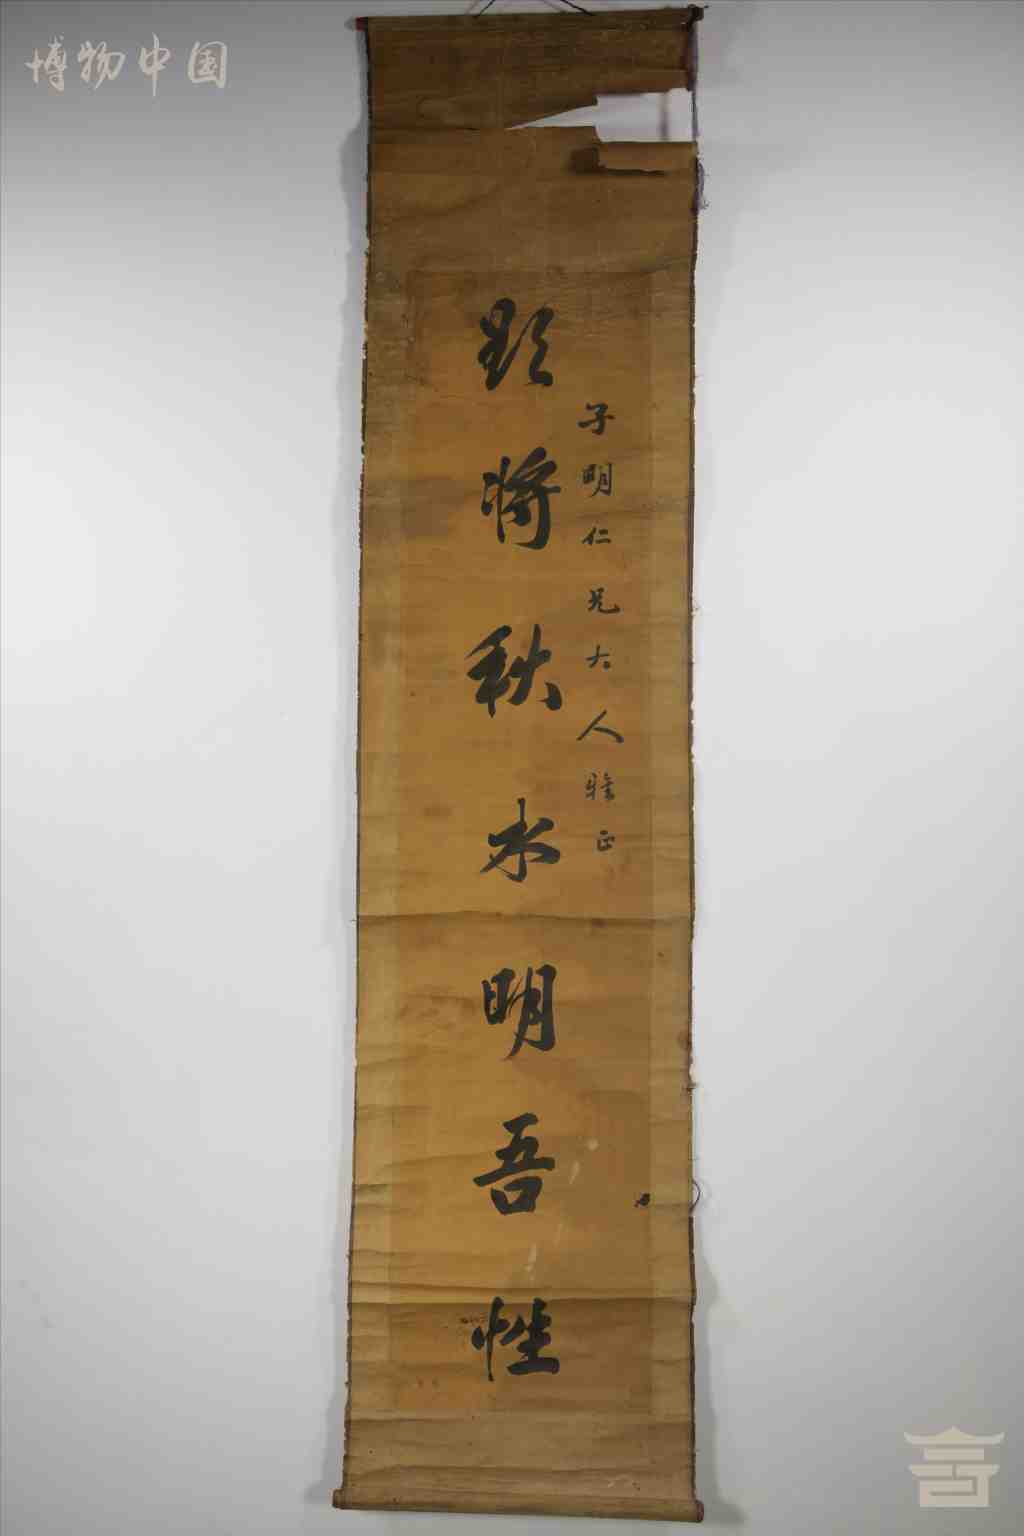 博物中国
子明仁兄大人雅正
將秋水明吾性